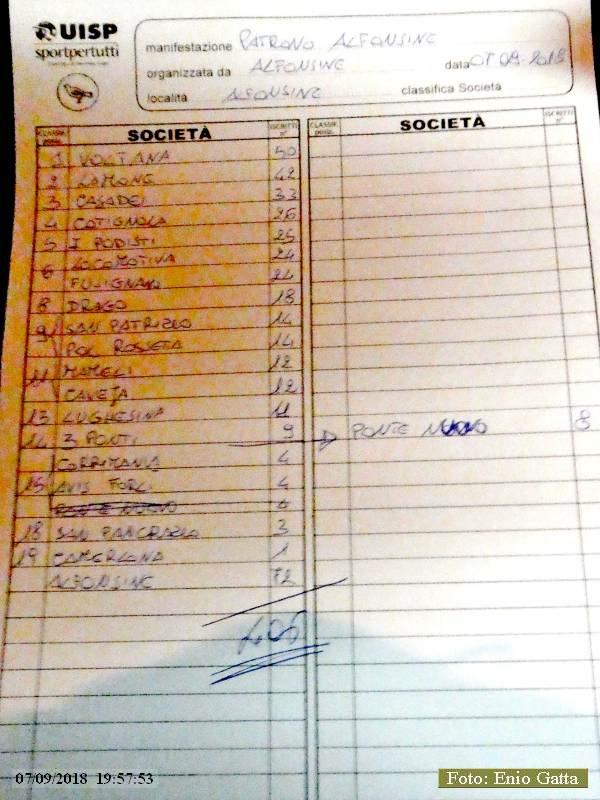 UISP
sportpertutti
manifestazione PATRONO ALFONSINE
organizzata da ALFONSINE data 07.09.2018
località ALFONSINE classifica Società
CLASSIF. SOCIETÀ ISCRITTI n°
1 VOLTANA 50
2 LAMONE 42
3 CASADEI 33
4 COTIGNOLA 26
5 I PODISTI 25
6 LOCOMOTIVA 24
FUSIGNANO 24
8 DRAGO 18
9 SAN PATRIZIO 14
POL ROSSETA 14
11 MAMELI 12
CAVEJA 12
13 LUGHESINA 11
14 3 PONTI 9
CORRIMANIA 4
15 AVIS FORLI 4
PONTE NUOVO
18 SAN PANCRAZIO 3
19 CAMERLONA 1
ALFONSINE 72
405
CLASSIF. SOCIETÀ ISCRITTI n°
PONTE NUOVO 8
07/09/2018 19:57:53
Foto: Enio Gatta